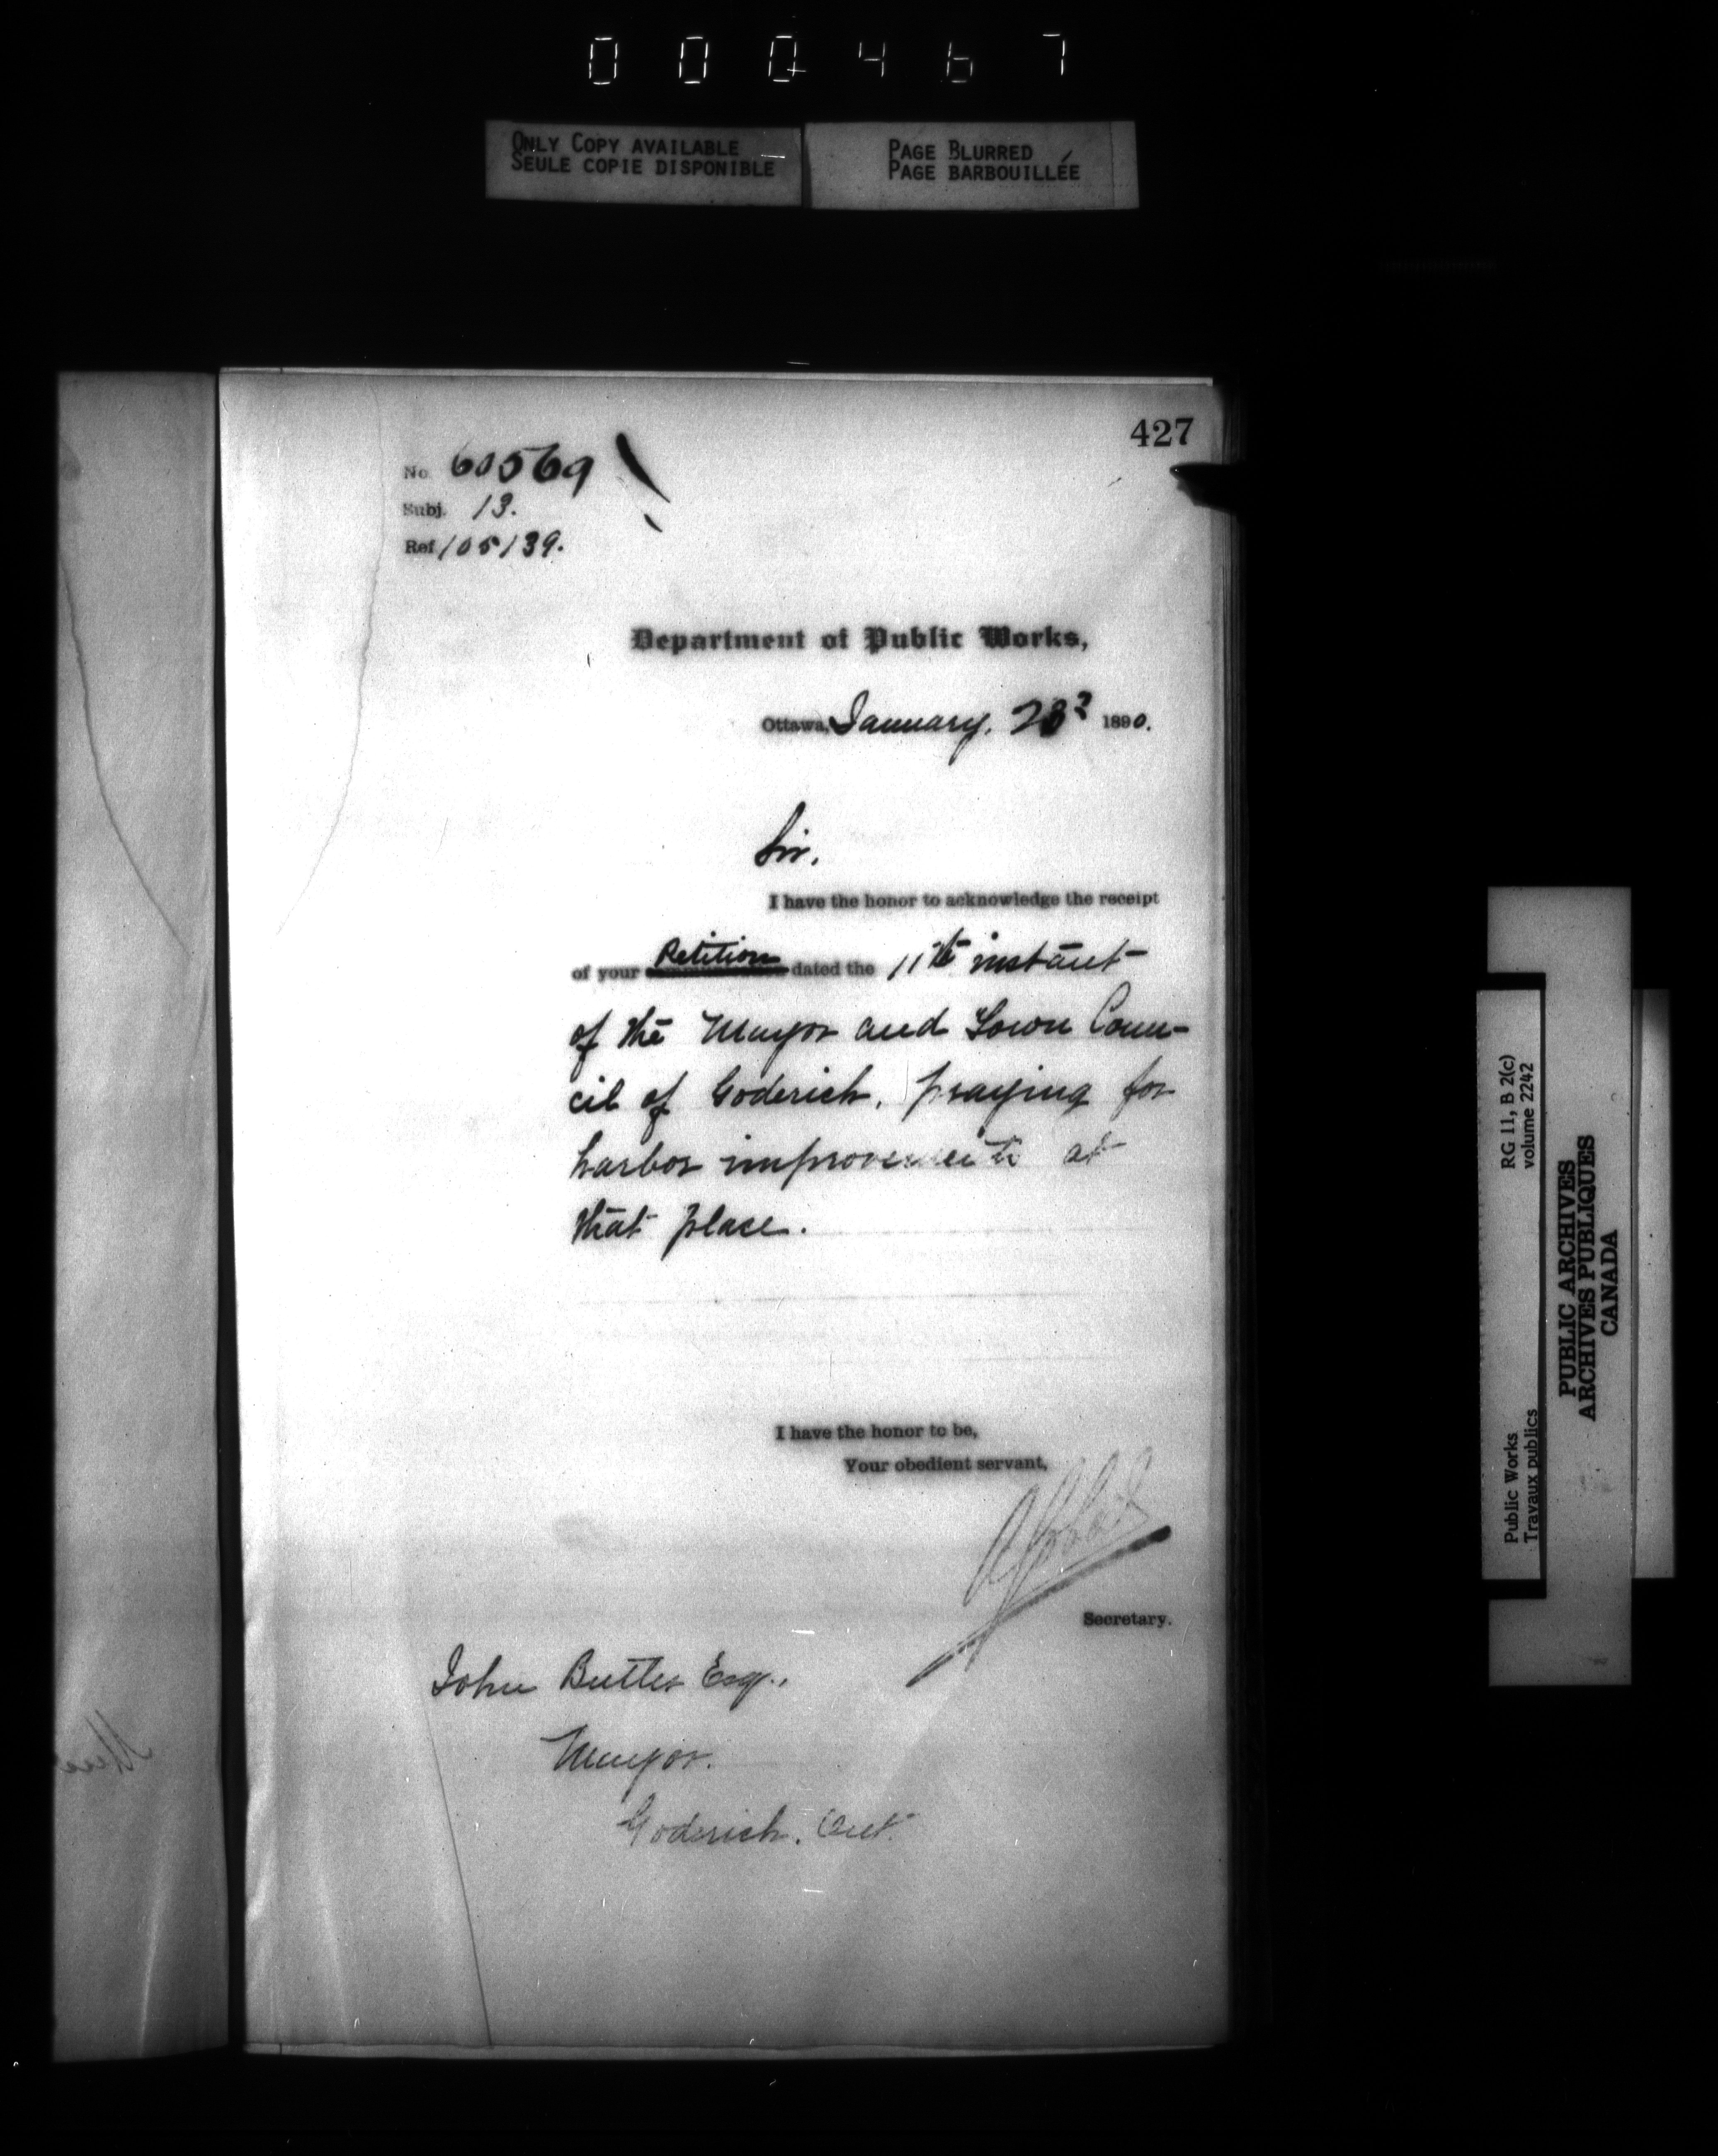 000467
ONLY COPY AVAILABLE
SEULE COPIE DISPONIBLE
PAGE BLURRED
PAGE BARBOUILLÉE
427
No. 60569
Subj. 13.
Ref 105139.
Department of Public Works,
Ottawa, January, 23d 1890.
Sir,
I have the honor to acknowledge the receipt
of your Petition dated the 11th instant
of the Mayor and Town Coun-
cil of Goderich, praying for
harbor improvements at
that place.
I have the honor to be,
Your obedient servant,
Secretary.
John Butler Esq.,
Mayor.
Goderich. Ont.
RG 11, B 2(c)
volume 2242
Public Works
Travaux publics
PUBLIC ARCHIVES
ARCHIVES PUBLIQUES
CANADA